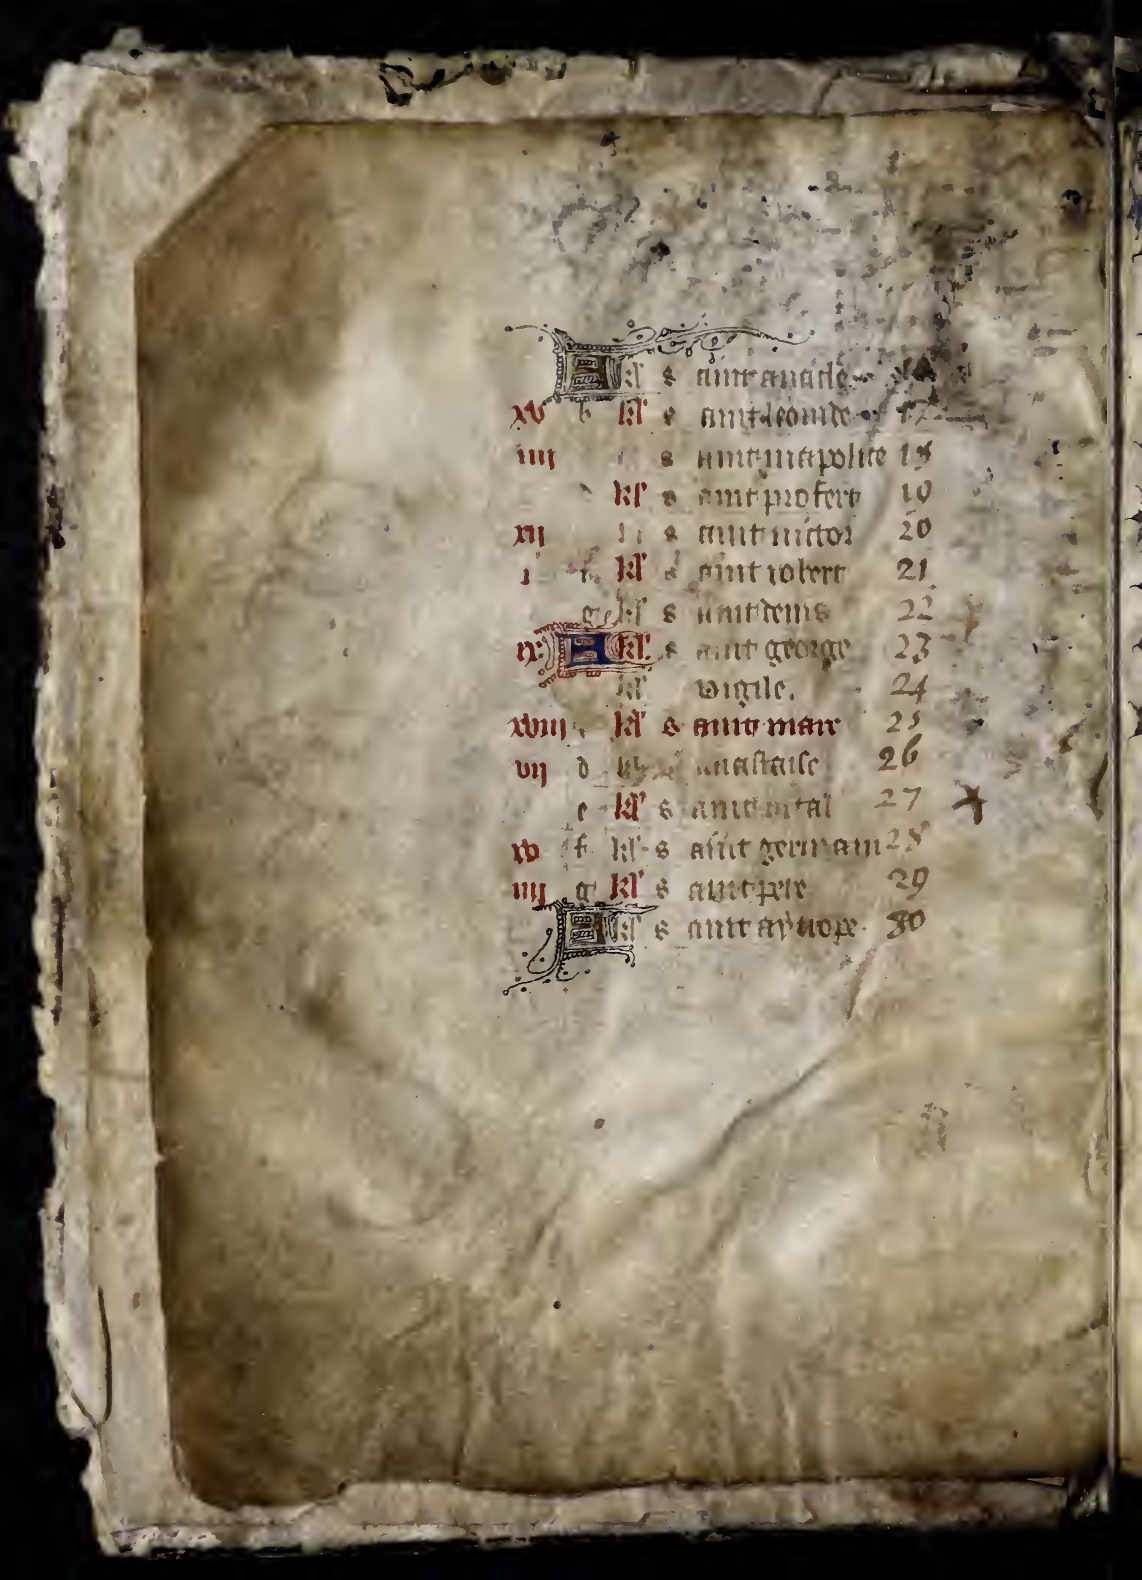 A kl' s aint
xv b kl' s aint leonide 17
iiii s aint ypolite 18
kl' s aint profert 19
xii kl' s aint victor 20
i f kl' s aint robert 21
g kl' s aint denis 22
ix A kl' s aint george 23
kl' vigile. 24
xviii kl' s aint marc 25
vii d anastaise 26
e kl' s aint vital 27
xv f kl' s aint germain 28
iiii g kl' s aint pere 29
A kl' s aint 30